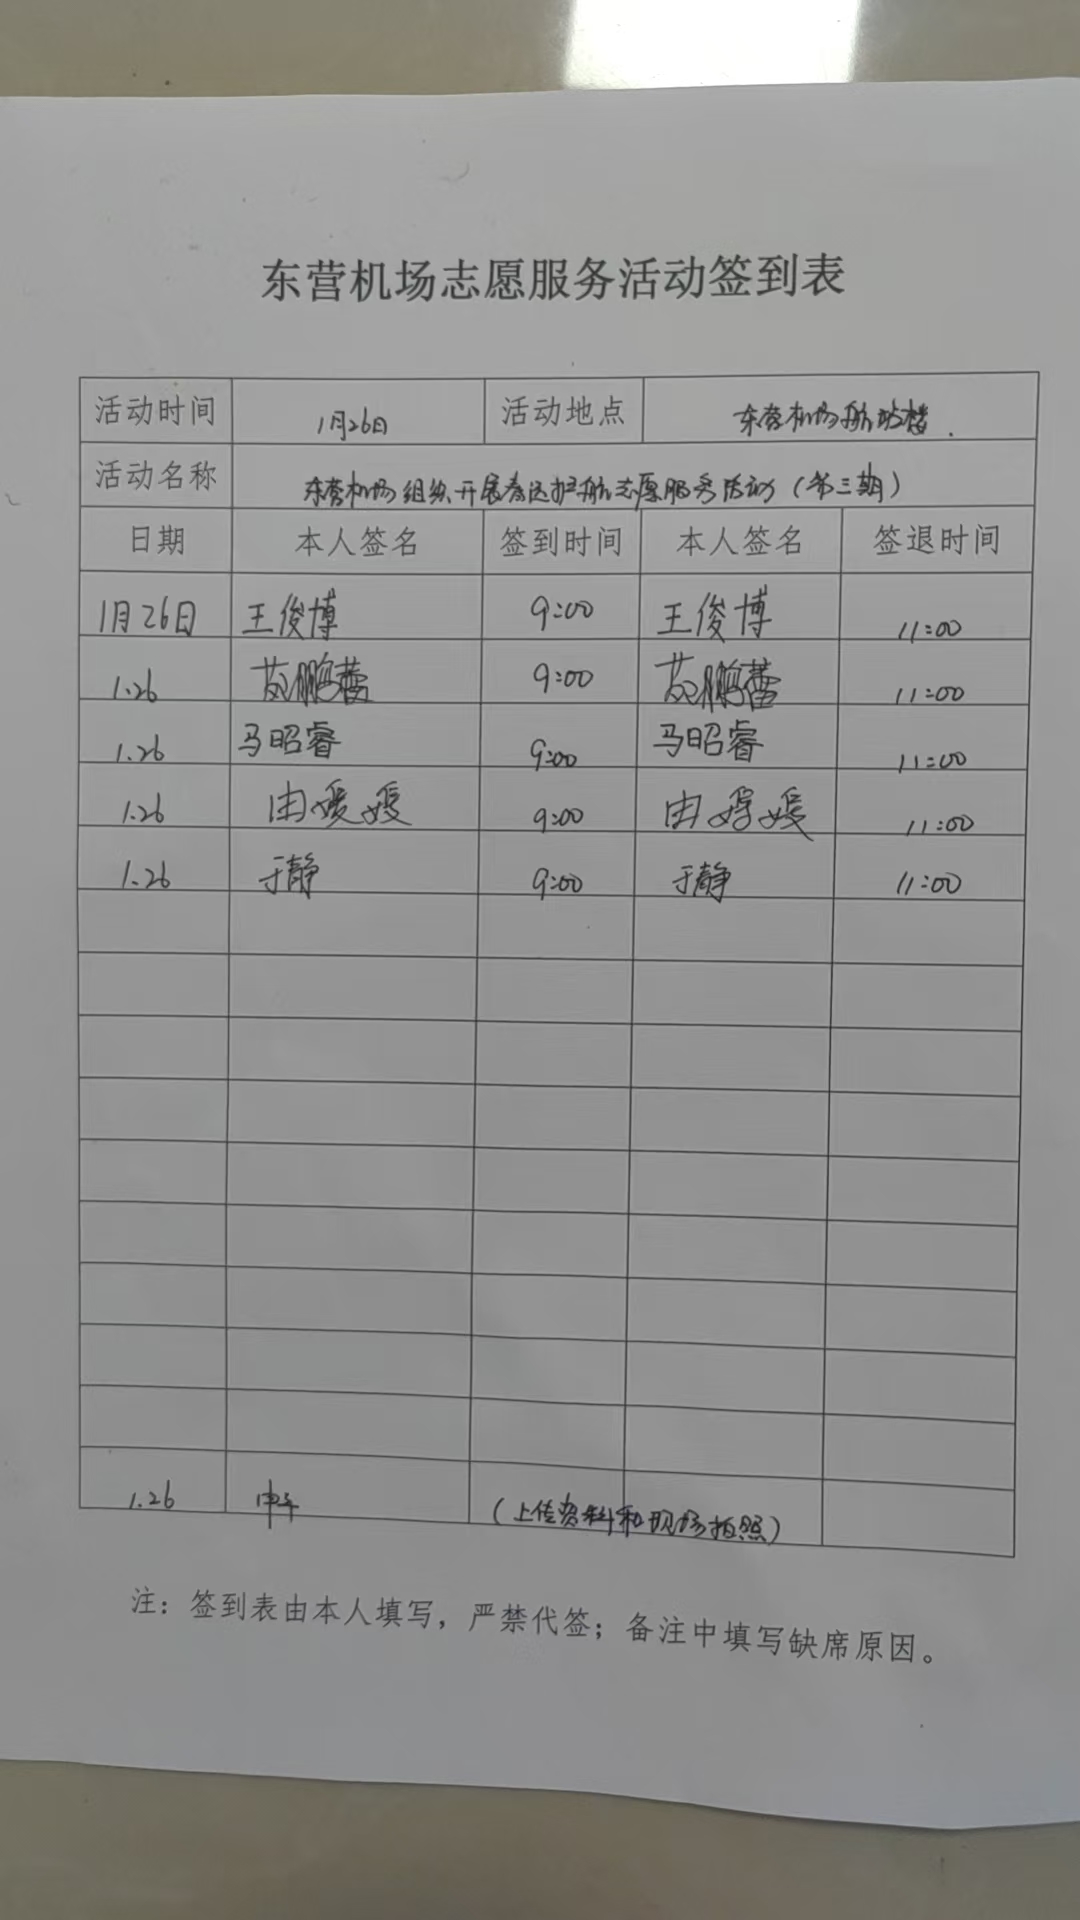 东营机场志愿服务活动签到表
活动时间 1月26日 活动地点 东营机场航站楼.
活动名称 东营机场组织开展春运护航志愿服务活动（第三期）
日期 本人签名 签到时间 本人签名 签退时间
1月26日 王俊博 9:00 王俊博 11:00
1.26 鹏蕾 9:00 鹏蕾 11:00
1.26 马昭睿 9:00 马昭睿 11:00
1.26 由媛媛 9:00 由媛媛 11:00
1.26 于静 9:00 于静 11:00
1.26 （上传资料和现场拍照）
注：签到表由本人填写，严禁代签；备注中填写缺席原因。